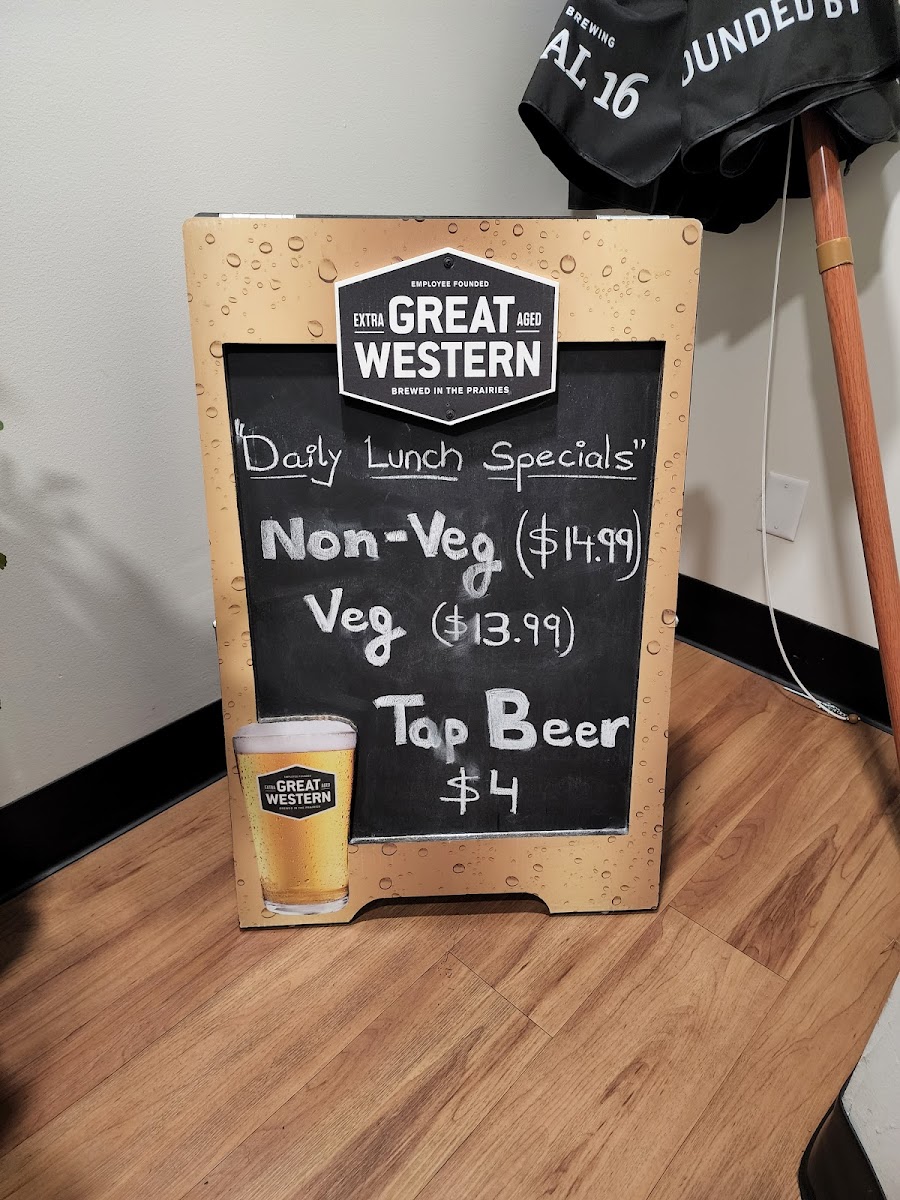 BREWING
AL 16
OUNDED BY
EMPLOYEE FOUNDED
EXTRA GREAT AGED
WESTERN
BREWED IN THE PRAIRIES
"Daily Lunch Specials"
Non-Veg ($14.99)
Veg ($13.99)
Tap Beer
$4
EMPLOYEE FOUNDED
EXTRA GREAT AGED
WESTERN
BREWED IN THE PRAIRIES